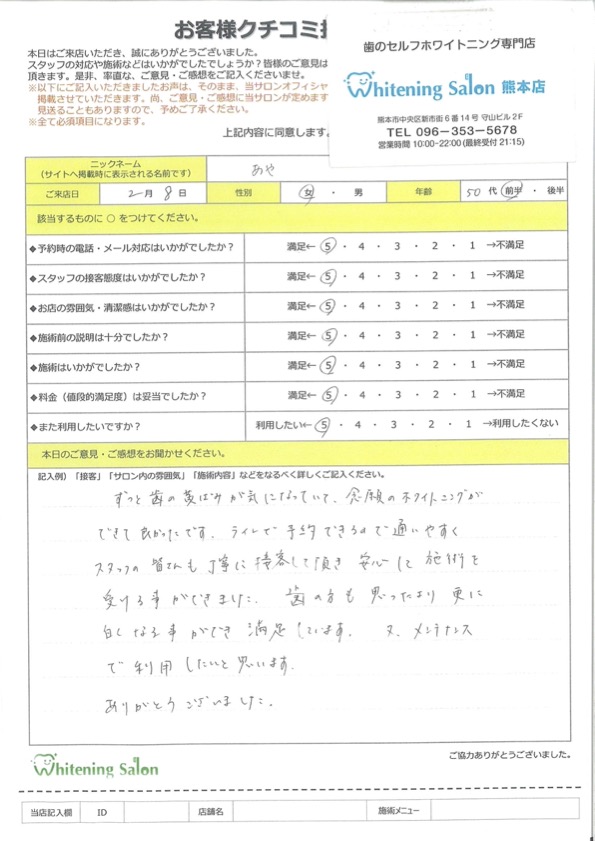 お客様クチコミ
本日はご来店いただき、誠にありがとうございました。
スタッフの対応や施術などはいかがでしたでしょうか？皆様のご意見は
頂きます。是非、率直な、ご意見・ご感想をご記入くださいませ。
※以下にご記入いただきましたお声は、そのまま、当サロンオフィシャ
掲載させていただきます。尚、ご意見・ご感想に当サロンが定めます
見送ることもありますので、予めご了承ください。
※全て必須項目になります。
上記内容に同意します。
歯のセルフホワイトニング専門店
Whitening Salon 熊本店
熊本市中央区新市街6番14号 守山ビル2F
TEL 096-353-5678
営業時間 10:00~22:00(最終受付 21:15)
ニックネーム
(サイトへ掲載時に表示される名前です)
あや
ご来店日 2月8日 性別 女・男 年齢 50代 前半・後半
該当するものに○をつけてください。
◆予約時の電話・メール対応はいかがでしたか？ 満足← 5・4・3・2・1 →不満足
◆スタッフの接客態度はいかがでしたか？ 満足← 5・4・3・2・1 →不満足
◆お店の雰囲気・清潔感はいかがでしたか？ 満足← 5・4・3・2・1 →不満足
◆施術前の説明は十分でしたか？ 満足← 5・4・3・2・1 →不満足
◆施術はいかがでしたか？ 満足← 5・4・3・2・1 →不満足
◆料金（値段的満足度）は妥当でしたか？ 満足← 5・4・3・2・1 →不満足
◆また利用したいですか？ 利用したい← 5・4・3・2・1 →利用したくない
本日のご意見・ご感想をお聞かせください。
記入例）「接客」「サロン内の雰囲気」「施術内容」などをなるべく詳しくご記入ください。
ずっと歯の黄ばみが気になっていて、念願のホワイトニングが
できて良かったです。ラインで予約できるので通いやすく
スタッフの皆さんも丁寧に接客して頂き安心して施術を
受ける事ができました。歯の方も思ったより更に
白くなる事ができ満足しています。又、メンテナンス
で利用したいと思います。
ありがとうございました。
ご協力ありがとうございました。
Whitening Salon
当店記入欄 ID 店舗名 施術メニュー